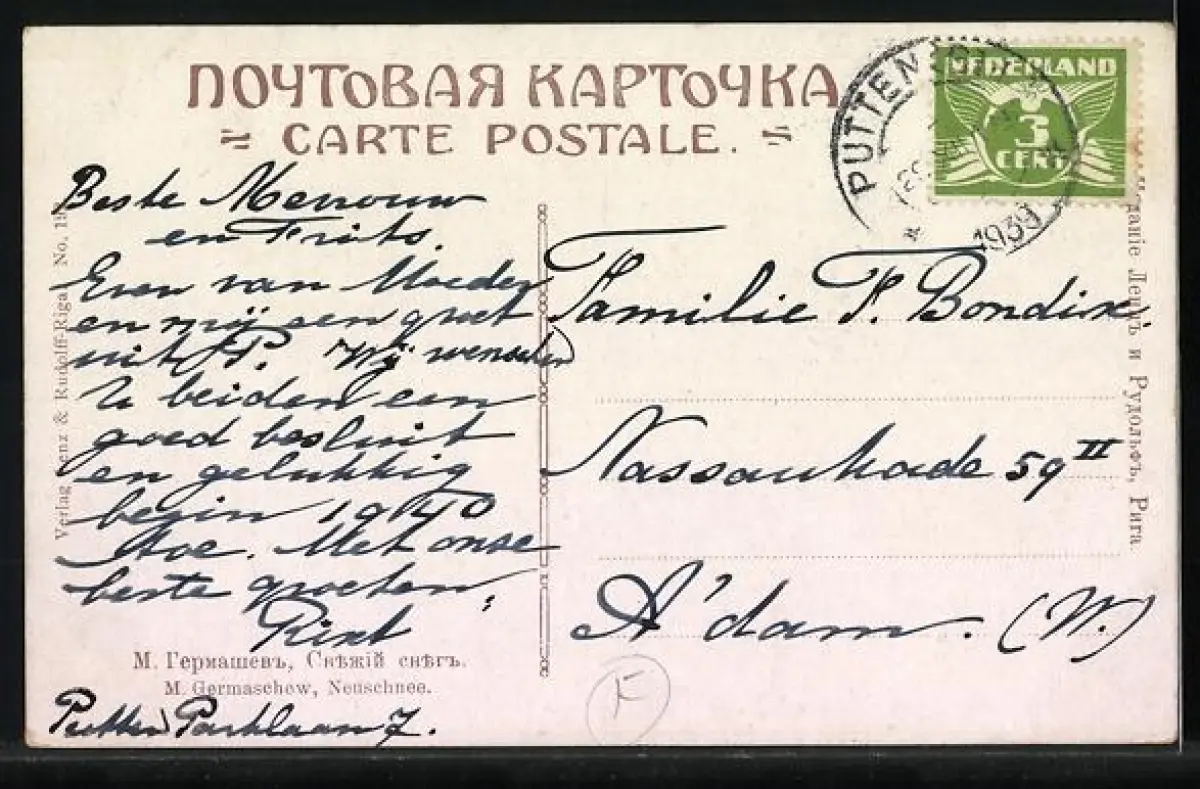 ПОЧТОВАЯ КАРТОЧКА
CARTE POSTALE.
PUTTEN
1939
NEDERLAND
3
CENT
Beste Mevrouw
en Frits.
Even van Moeder
en mij een groet
uit P. Wij wenschen
U beiden een
goed besluit
en gelukkig
begin 1940
toe. Met onze
beste groeten,
М. Гермашевъ, Свѣжій снѣгъ.
M. Germaschew, Neuschnee.
Putten Parklaan 7.
Verlag Lenz & Rudolff-Riga. No. 19
Familie F. Bondix
Nassaukade 59 II
A'dam. (W.)
F
Изданіе Ленцъ и Рудольфъ, Рига.